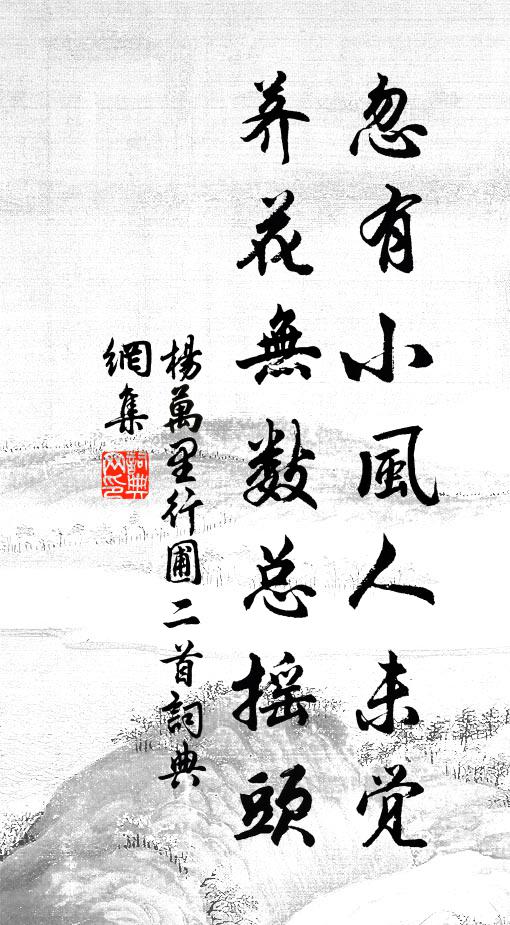 忽有小風人未觉
荞花無数总摇頭
楊萬里行圃二首詞典
網集
詞典
网印